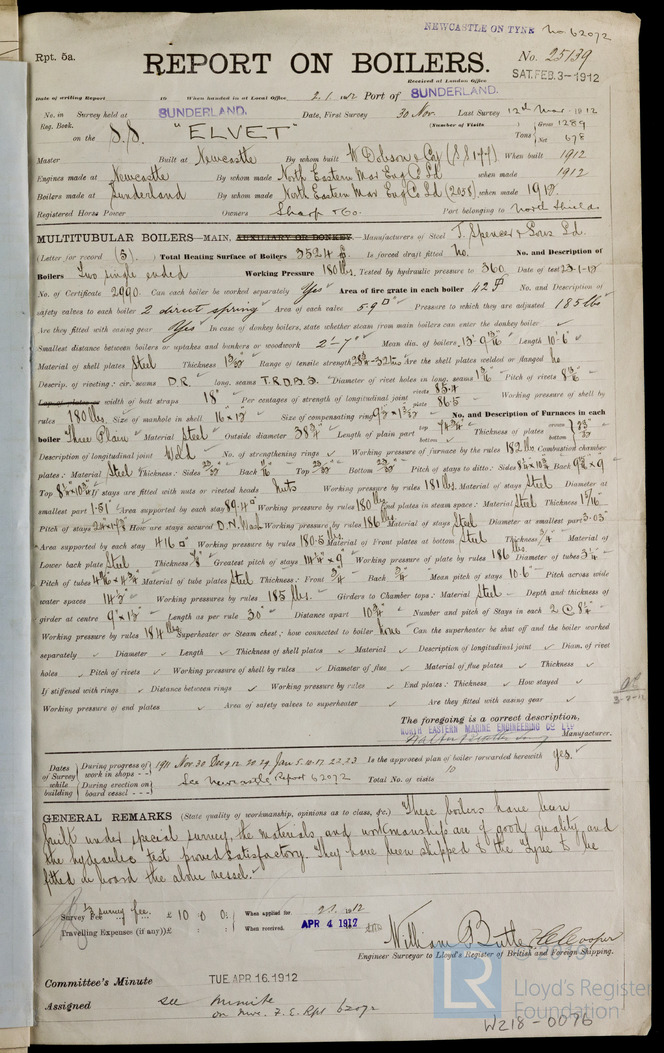 NEWCASTLE ON TYNE No. 62072
Rpt. 5a.
REPORT ON BOILERS.
No. 25139
Received at London Office
SAT. FEB. 3-1912
Date of writing Report 19 When handed in at Local Office 2. 1. 1912 Port of SUNDERLAND.
No. in Survey held at SUNDERLAND. Date, First Survey 30 Nov. Last Survey 12th Mar. 1912
Reg. Book. (Number of Visits
on the S.S. "ELVET" Tons Gross 1289 Net 678
Master Built at Newcastle By whom built W Dobson & Coy (SS 177) When built 1912
Engines made at Newcastle By whom made North Eastern Mar Eng Co Ld when made 1912
Boilers made at Sunderland By whom made North Eastern Mar Eng Co Ld (2058) when made 1912
Registered Horse Power Owners Sharp & Co. Port belonging to North Shields
MULTITUBULAR BOILERS—MAIN, AUXILIARY OR DONKEY.—Manufacturers of Steel J. Spencer & Sons Ld.
(Letter for record (S) ) Total Heating Surface of Boilers 3524 Is forced draft fitted No. No. and Description of
Boilers Two single ended Working Pressure 180 lbs Tested by hydraulic pressure to 360 Date of test 23-1-12
No. of Certificate 2990 Can each boiler be worked separately Yes Area of fire grate in each boiler 42 No. and Description of
safety valves to each boiler 2 direct spring Area of each valve 5.9 Pressure to which they are adjusted 185 lbs
Are they fitted with easing gear Yes In case of donkey boilers, state whether steam from main boilers can enter the donkey boiler
Smallest distance between boilers or uptakes and bunkers or woodwork 2'-7" Mean dia. of boilers 13'-9 Length 10'-6"
Material of shell plates Steel Thickness Range of tensile strength Are the shell plates welded or flanged No
Descrip. of riveting: cir. seams D.R. long. seams T.R.D.B.S. Diameter of rivet holes in long. seams Pitch of rivets
Lap of plates or width of butt straps 18" Per centages of strength of longitudinal joint rivets 85.4 plate 86.5 Working pressure of shell by
rules 180 lbs Size of manhole in shell 16" x 12" Size of compensating ring No. and Description of Furnaces in each
boiler Three Plain Material Steel Outside diameter 38 Length of plain part top bottom Thickness of plates crown bottom
Description of longitudinal joint Weld No. of strengthening rings Working pressure of furnace by the rules 182 lbs Combustion chamber
plates: Material Steel Thickness: Sides Back Top Bottom Pitch of stays to ditto: Sides Back
Top If stays are fitted with nuts or riveted heads Nuts Working pressure by rules 181 lbs Material of stays Steel Diameter at
smallest part 1.51 Area supported by each stay 89.4 Working pressure by rules 180 lbs End plates in steam space: Material Steel Thickness
Pitch of stays How are stays secured D.N. Wash Working pressure by rules 186 lbs Material of stays Steel Diameter at smallest part 3.03
Area supported by each stay 416 Working pressure by rules 180.5 lbs Material of Front plates at bottom Steel Thickness Material of
Lower back plate Steel Thickness Greatest pitch of stays Working pressure of plate by rules 186 lbs Diameter of tubes 3
Pitch of tubes Material of tube plates Steel Thickness: Front Back Mean pitch of stays Pitch across wide
water spaces Working pressures by rules 185 lbs Girders to Chamber tops: Material Steel Depth and thickness of
girder at centre Length as per rule 30" Distance apart Number and pitch of Stays in each
Working pressure by rules 184 lbs Superheater or Steam chest; how connected to boiler None Can the superheater be shut off and the boiler worked
separately Diameter Length Thickness of shell plates Material Description of longitudinal joint Diam. of rivet
holes Pitch of rivets Working pressure of shell by rules Diameter of flue Material of flue plates Thickness
If stiffened with rings Distance between rings Working pressure by rules End plates: Thickness How stayed
Working pressure of end plates Area of safety valves to superheater Are they fitted with easing gear
The foregoing is a correct description,
NORTH EASTERN MARINE ENGINEERING CO LTD
Manufacturer.
Dates of Survey while building During progress of work in shops - - 1911 Nov. 30 Dec. 9. 12. 20. 29. Jan. 5. 10. 17. 22. 23 Is the approved plan of boiler forwarded herewith yes.
During erection on board vessel - - - See Newcastle Report 62072 Total No. of visits 10
GENERAL REMARKS (State quality of workmanship, opinions as to class, &c.) These boilers have been
built under special survey, the materials and workmanship are of good quality and
the hydraulic test proved satisfactory. They have been shipped to the Tyne to be
fitted on board the above vessel.
Survey Fee £ 10 0 0 When applied for, 2. 2. 1912
Travelling Expenses (if any) £ When received, APR 4 1912
William Butler
Engineer Surveyor to Lloyd's Register of British and Foreign Shipping.
Committee's Minute TUE APR. 16. 1912
Assigned see minute
on Nwc. F.E. Rpt 62072
LR
© 2019
Lloyd's Register
Foundation
W218-0096